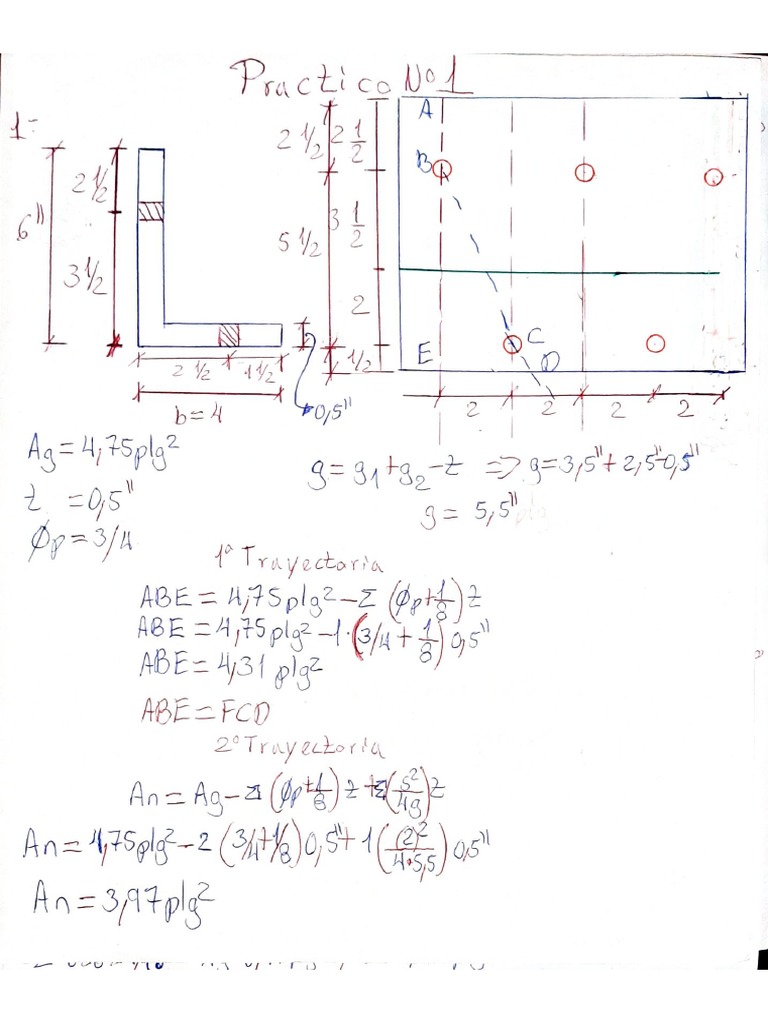 Practico Nº1
1-
6"
2 1/2
3 1/2
2 1/2
1 1/2
b=4
0,5"
2 1/2
5 1/2
2 1/2
3 1/2
2
1/2
A
B
C
E
D
2 2 2 2
Ag=4,75plg²
t =0,5"
Øp=3/4
g=g1+g2-t => g=3,5"+2,5"-0,5"
g= 5,5"plg
1ª Trayectoria
ABE=4,75plg²-Σ(Øp+1/8)t
ABE=4,75plg²-1·(3/4+1/8)0,5"
ABE=4,31plg²
ABE=FCD
2º Trayectoria
An=Ag-Σ(Øp+1/8)t+Σ(s²/4g)t
An=4,75plg²-2(3/4+1/8)0,5"+1((2)²/4*5,5)0,5"
An=3,97plg²